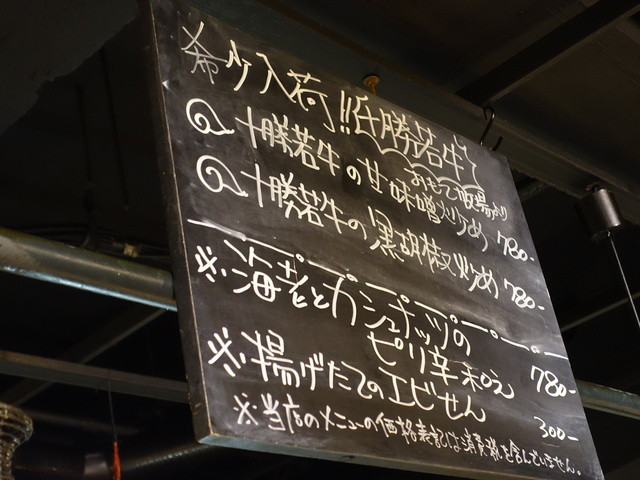 希少入荷!!十勝若牛
おもて牧場より
十勝若牛の甘味噌炒め 780-
十勝若牛の黒胡椒炒め 780-
※海老とカシューナッツの
ピリ辛和え 780-
※揚げたてのエビせん 300-
※当店のメニューの価格表記は消費税を含んでいません。